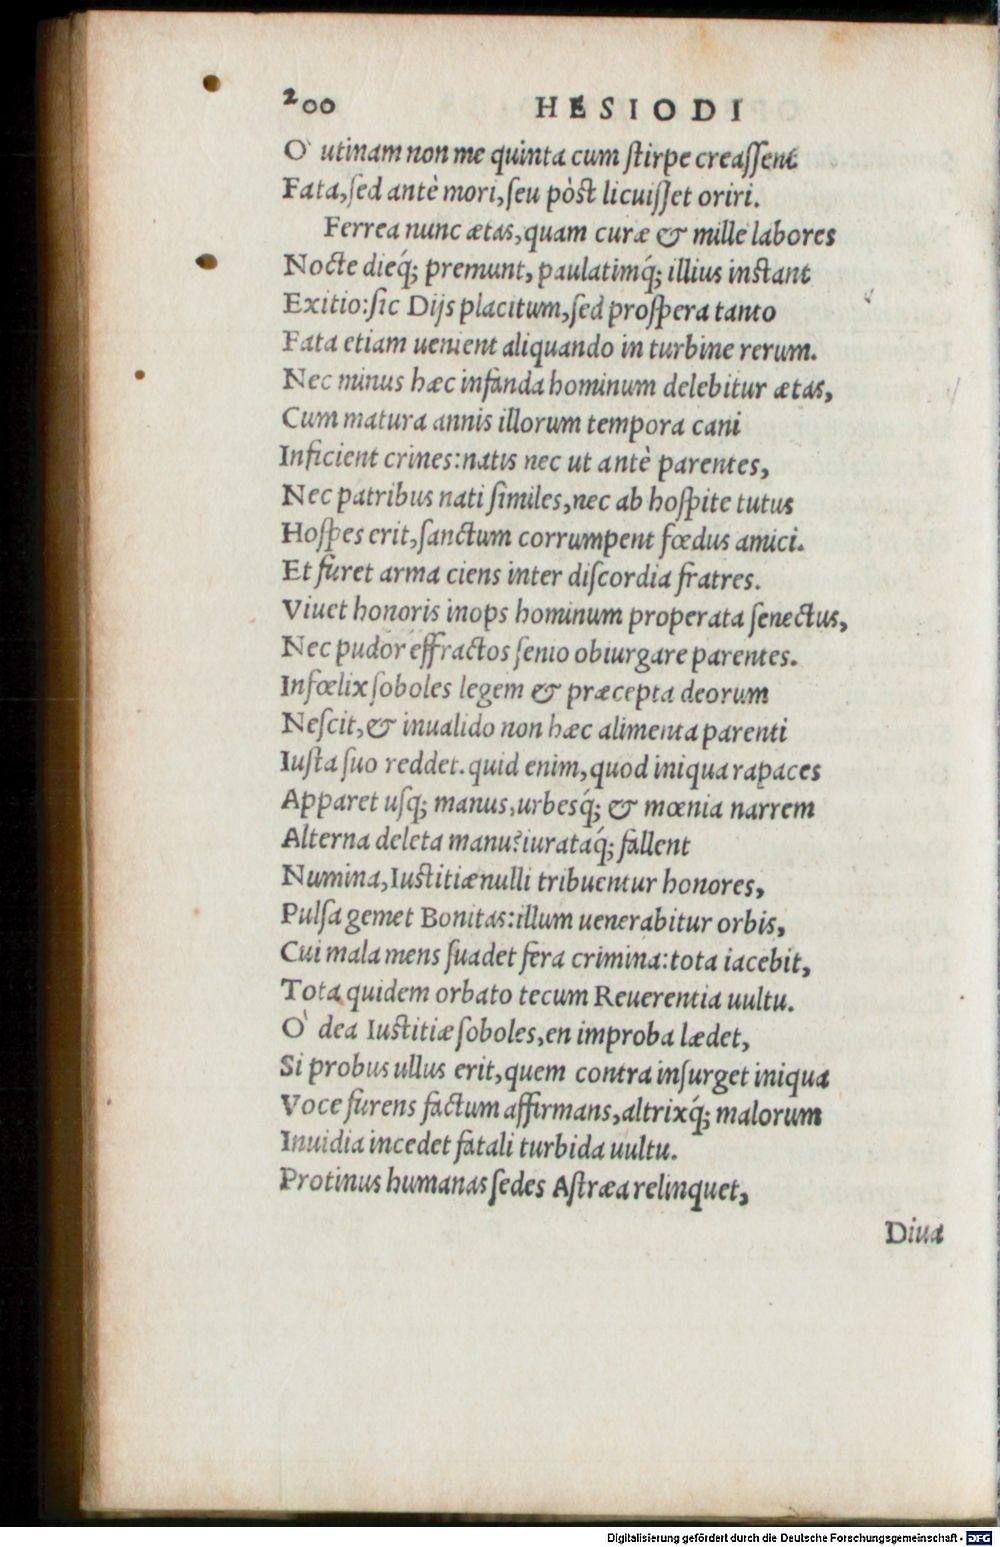 200 HESIODI
O' utinam non me quinta cum ſtirpe creaſſent
Fata, ſed antè mori, ſeu pòst licuiſſet oriri.
Ferrea nunc ætas, quam curæ & mille labores
Nocte dieq́; premunt, paulatimq́; illius inſtant
Exitio: ſic Dijs placitum, ſed proſpera tanto
Fata etiam uenient aliquando in turbine rerum.
Nec minus hæc infanda hominum delebitur ætas,
Cum matura annis illorum tempora cani
Inficient crines: natis nec ut antè parentes,
Nec patribus nati ſimiles, nec ab hoſpite tutus
Hoſpes erit, ſanctum corrumpent fœdus amici.
Et furet arma ciens inter diſcordia fratres.
Viuet honoris inops hominum properata ſenectus,
Nec pudor effractos ſenio obiurgare parentes.
Infœlix ſoboles legem & præcepta deorum
Neſcit, & inualido non hæc alimenta parenti
Iuſta ſuo reddet. quid enim, quod iniqua rapaces
Apparet uſq; manus, urbesq́; & mœnia narrem
Alterna deleta manu? iurataq́; fallent
Numina, Iuſtitiæ nulli tribuentur honores,
Pulſa gemet Bonitas: illum uenerabitur orbis,
Cui mala mens ſuadet fera crimina: tota iacebit,
Tota quidem orbato tecum Reuerentia uultu.
O' dea Iuſtitiæ ſoboles, en improba lædet,
Si probus ullus erit, quem contra inſurget iniqua
Voce furens factum affirmans, altrixq́; malorum
Inuidia incedet fatali turbida uultu.
Protinus humanas ſedes Aſtræa relinquet,
Diua
Digitalisierung gefördert durch die Deutsche Forschungsgemeinschaft - DFG